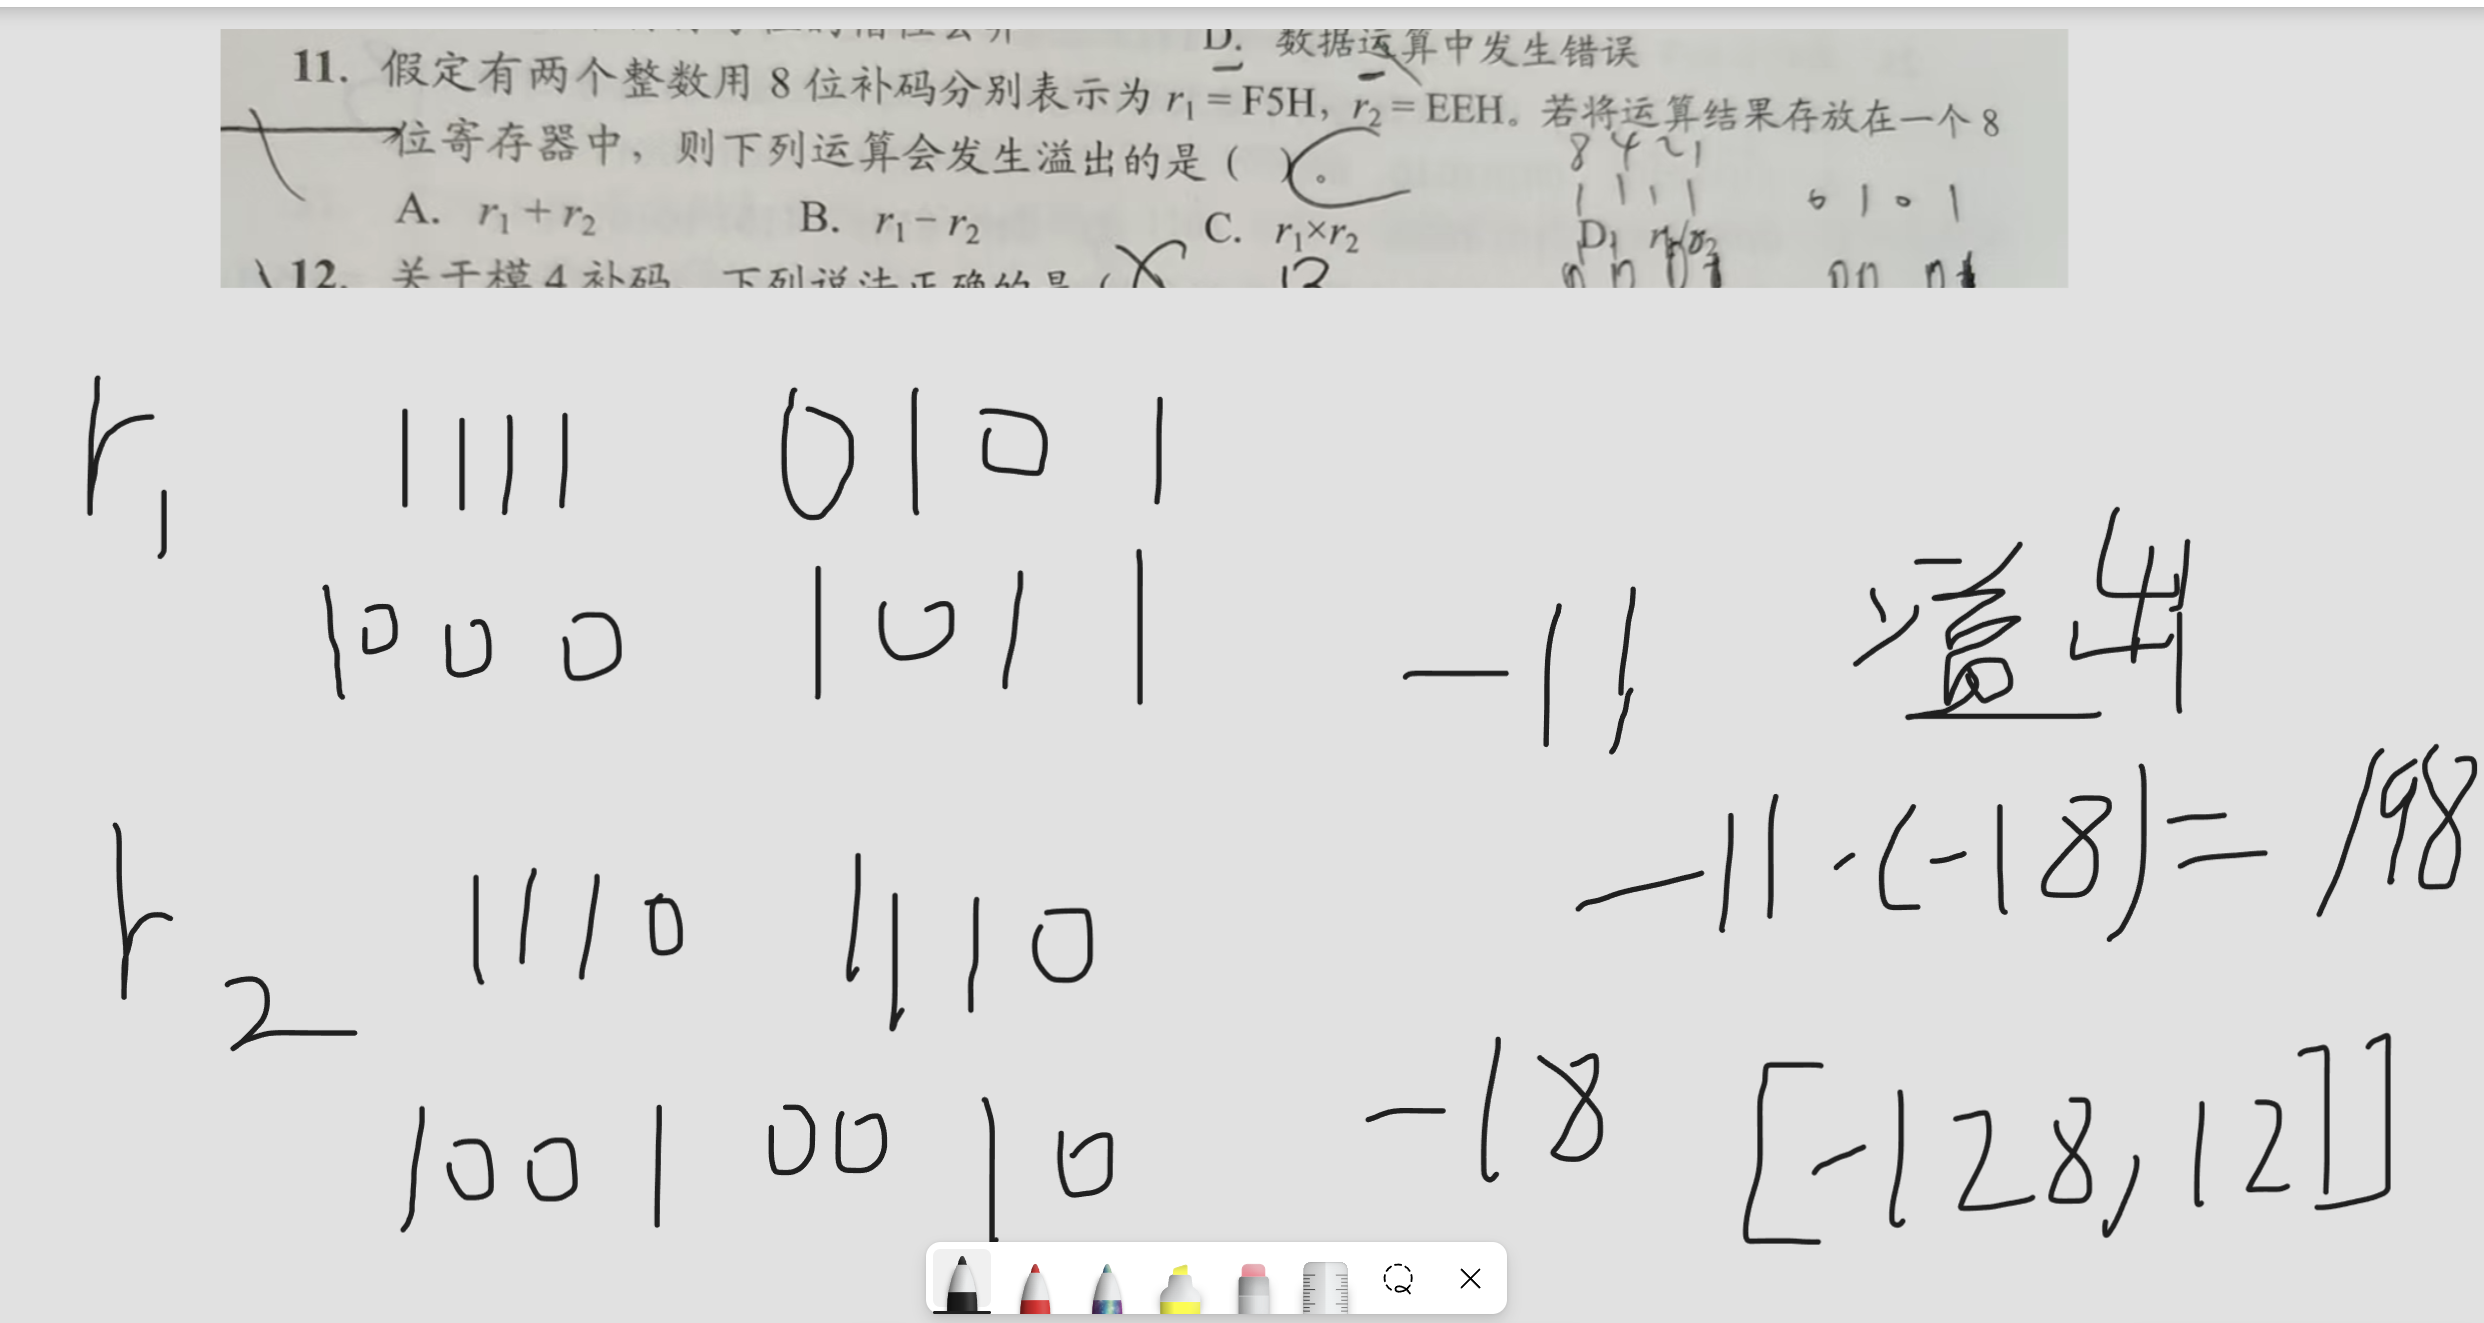 D. 数据运算中发生错误
11. 假定有两个整数用 8 位补码分别表示为 r₁ = F5H, r₂ = EEH。若将运算结果存放在一个 8
位寄存器中，则下列运算会发生溢出的是 ( )。 C
8 4 2 1
1 1 1 1 0 1 0 1
A. r₁ + r₂ B. r₁ − r₂ C. r₁×r₂ D. r₁/r₂
12. 关于模 4 补码，下列说法正确的是 (
r₁ 1111 0101
1000 1011 −11 溢出
−11·(−18) = 198
r₂ 1110 1110
1001 0010 −18 [−128, 127]